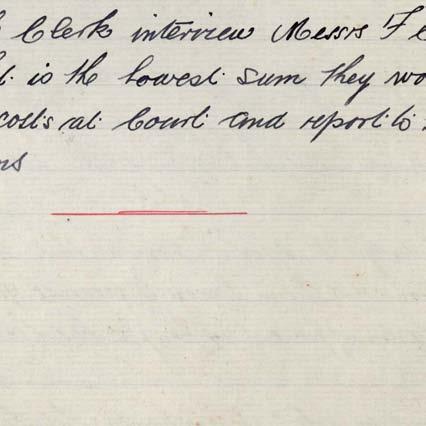 Clerk interview Messrs Fe
is the lowest sum they wo
costs at Court and report to